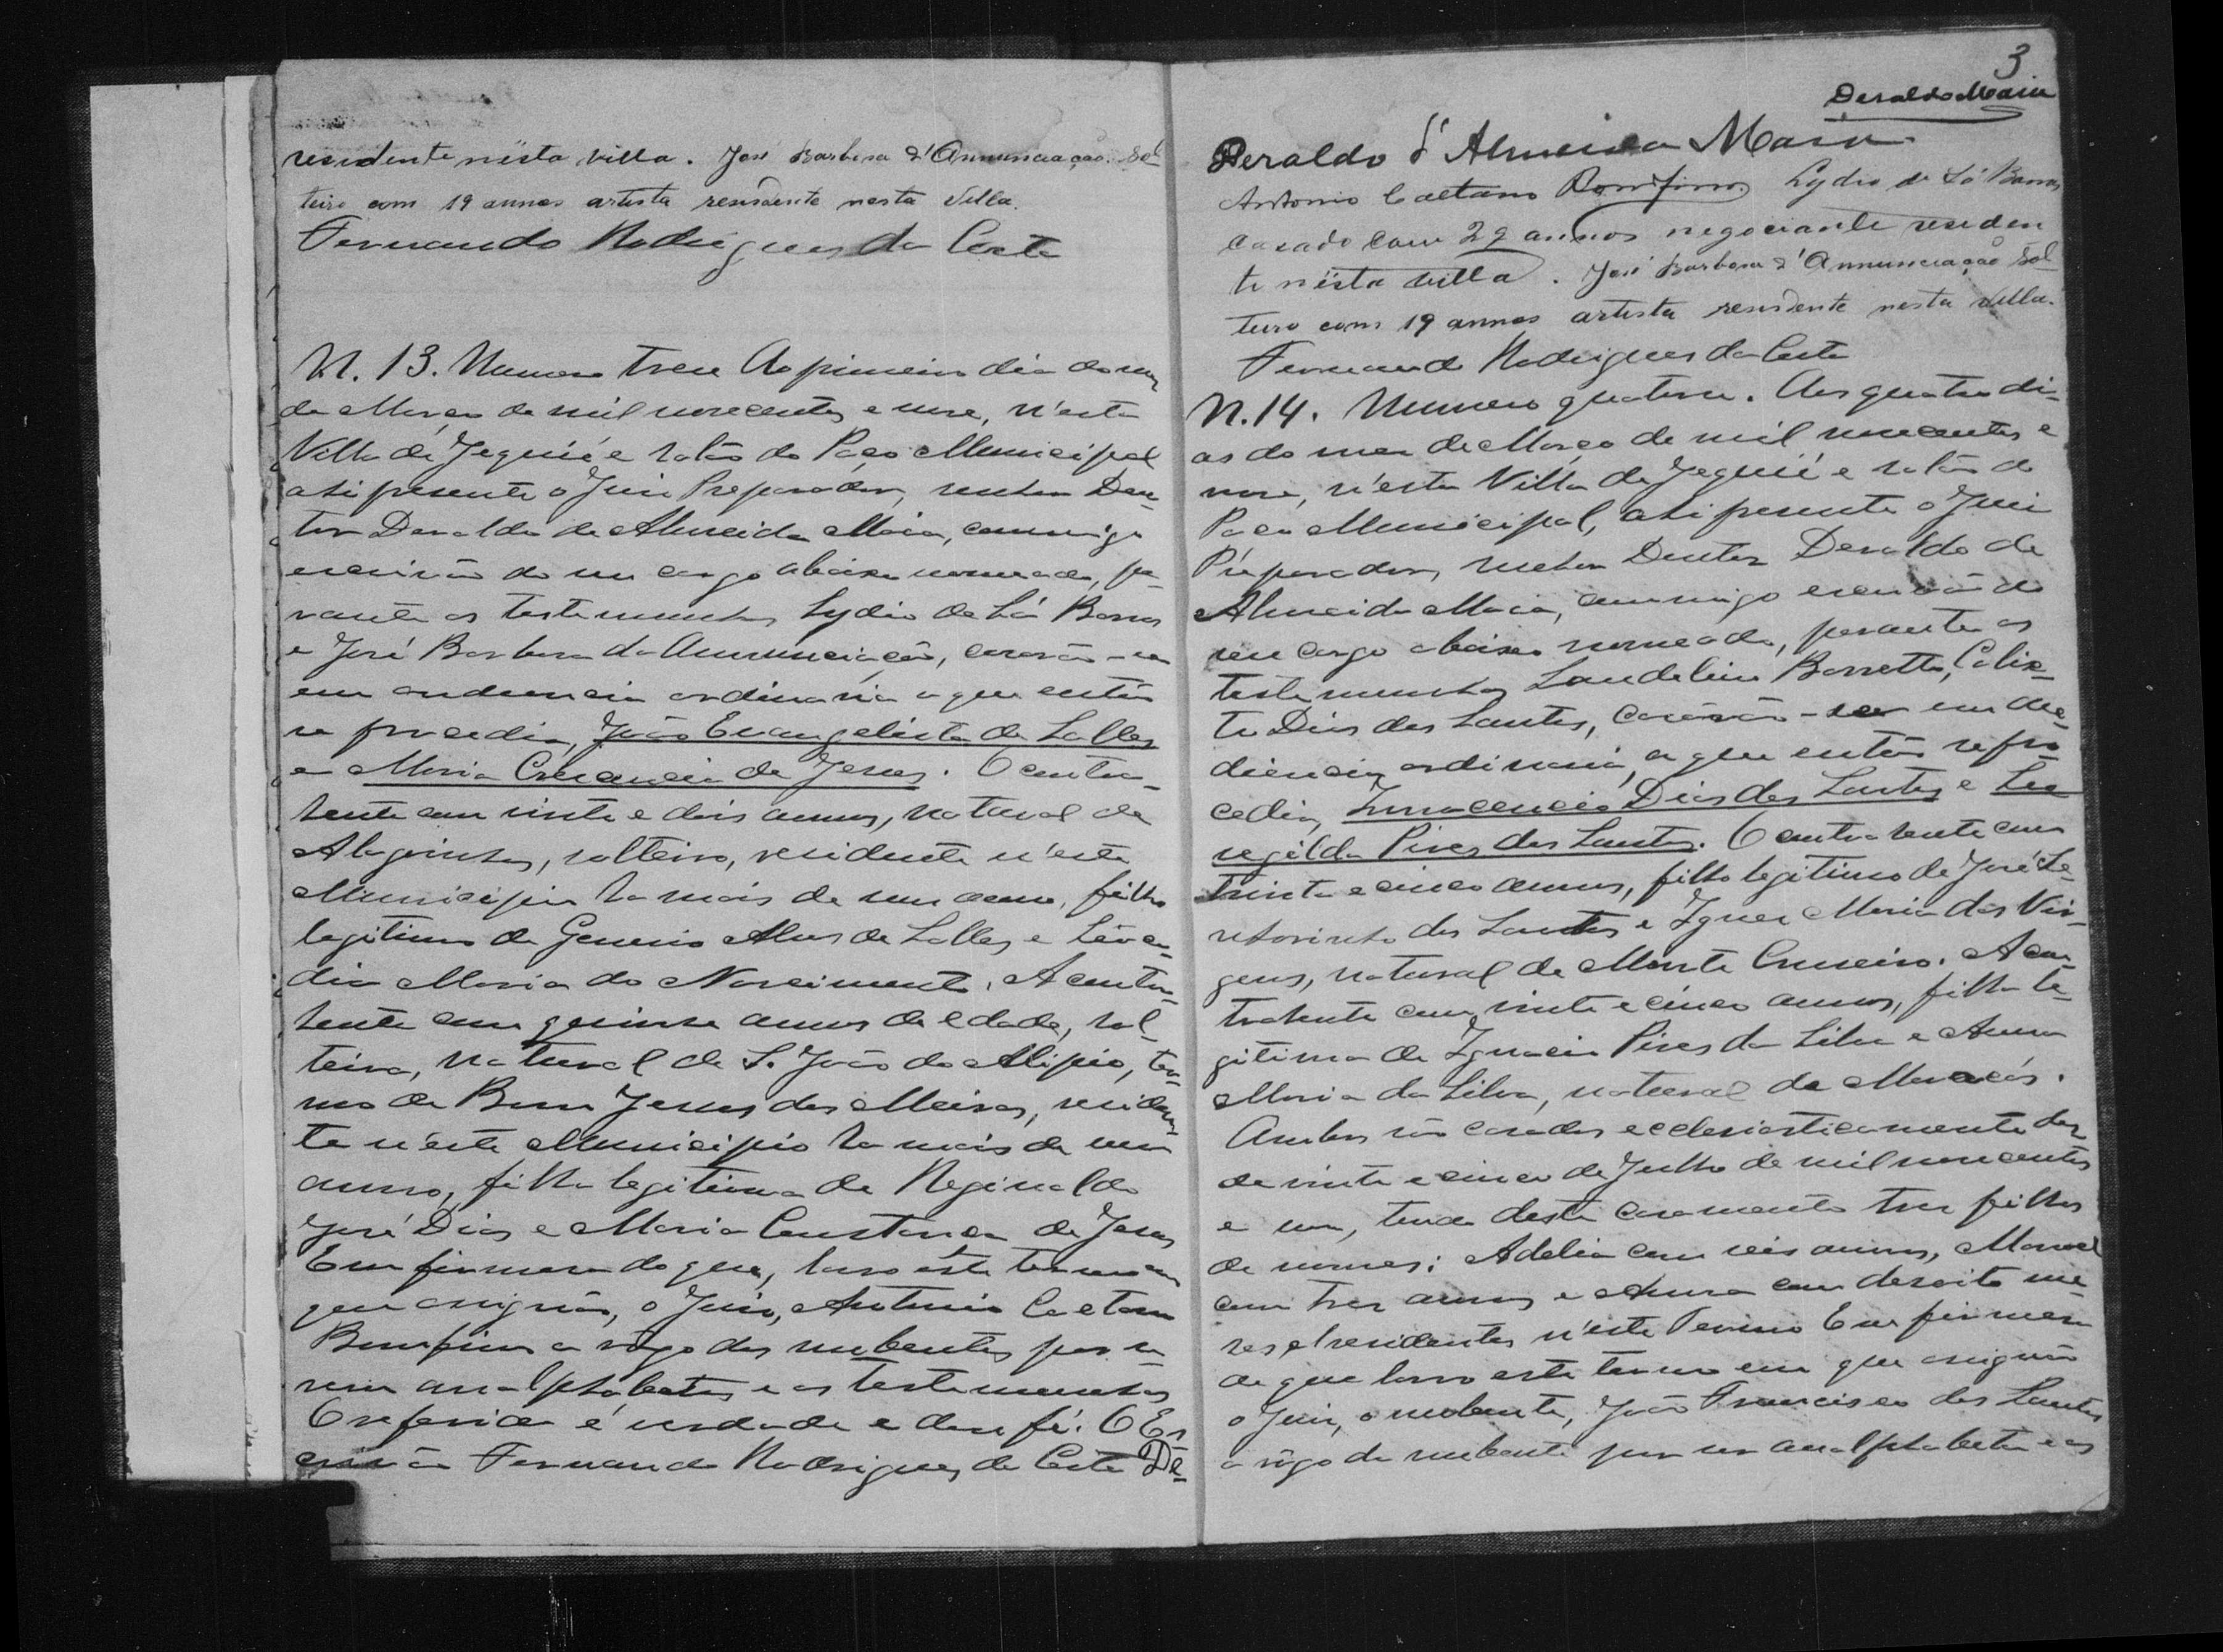 residente nésta villa. José Barbosa d'Annunciação. Sol
teiro com 19 annos artista residente nesta Villa.
Fernando Rodrigues da Costa
N. 13. Numero trese Ao primeiro dia do mez
de Março de mil novecentos e nove, n'esta
Villa de Jequié e salão do Paço Municipal
ahi presente o Juiz Preparador, senhor Dou-
tor Deraldo de Almeida Maia, commigo
escrivão do seu cargo abaixo nomeado, pe-
rante as testemunhas Lydio de Sá Barros
e José Barbosa da Annunciação, casarão-se
em audiencia ordinaria a que então
se procedia, João Evangelista de Salles
e Maria Constancia de Jesus. O contra-
hente com vinte e dois annos, natural de
Alagoinhas, solteiro, residente n'este
Municipio ha mais de um anno, filho
legitimo de Genesio Alves de Salles e
Maria do Nascimento. A contra-
hente com quinse annos de edade, sol
teira, natural de S. João do Alipio, ter-
mo de Bom Jesus dos Meiras, residen-
te n'este Municipio ha mais de um
anno, filha legitima de Reginaldo
José Dias e Maria Constancia de Jesus
Em firmesa do que, lavro este termo em
que assignão, o Juiz, Antonio Caetano
Bomfim a rôgo dos nubentes por se-
rem analphabetos e as testemunhas
O referido é verdade e dou fé. O Es
crivão Fernando Rodrigues da Costa De-
3
Deraldo Maia
Deraldo d'Almeida Maia
Antonio Caetano Bomfim Lydio de Sá Barros
casado com 29 annos negociante residen
te nésta villa. José Barbosa d'Annunciação Sol
teiro com 19 annos artista residente nesta Villa.
Fernando Rodrigues da Costa
N. 14. Numero quatorse. Aos quatro di-
as do mez de Março de mil novecentos e
nove, n'esta Villa de Jequié e salão do
Paço Municipal, ahi presente o Juiz
Preparador, senhor Doutor Deraldo de
Almeida Maia, commigo escrivão do
seu cargo abaixo nomeado, perante as
testemunhas Laudelino Barretto, Calix-
to Dias dos Santos, casarão-se em au-
diencia ordinaria, a que então se pro
cedia, Innocencio Dias dos Santos e
Pires dos Santos. O contrahente com
trinta e cinco annos, filho legitimo de José
dos Santos e Ignez Maria das Vir-
gens, natural de Monte Cruseiro. A con-
trahente com vinte e cinco annos, filha le-
gitima de Ignacio Pires da Silva e Anna
Maria da Silva, natural de Maracás.
Ambos são casados ecclesiasticamente des
de vinte e cinco de Julho de mil novecentos
e um, tendo deste casamento tres filhos
de nomes: Adelia com seis annos, Manoel
com tres annos e Anna com desoito me-
ses residentes n'este Termo Em firmesa
de que lavro este termo em que assignão
o Juiz, o nubente, João Francisco dos Santos
a rôgo da nubente por ser analphabeta e as